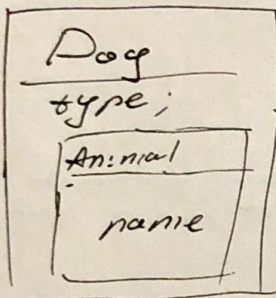 Dog
type;
Animal
name